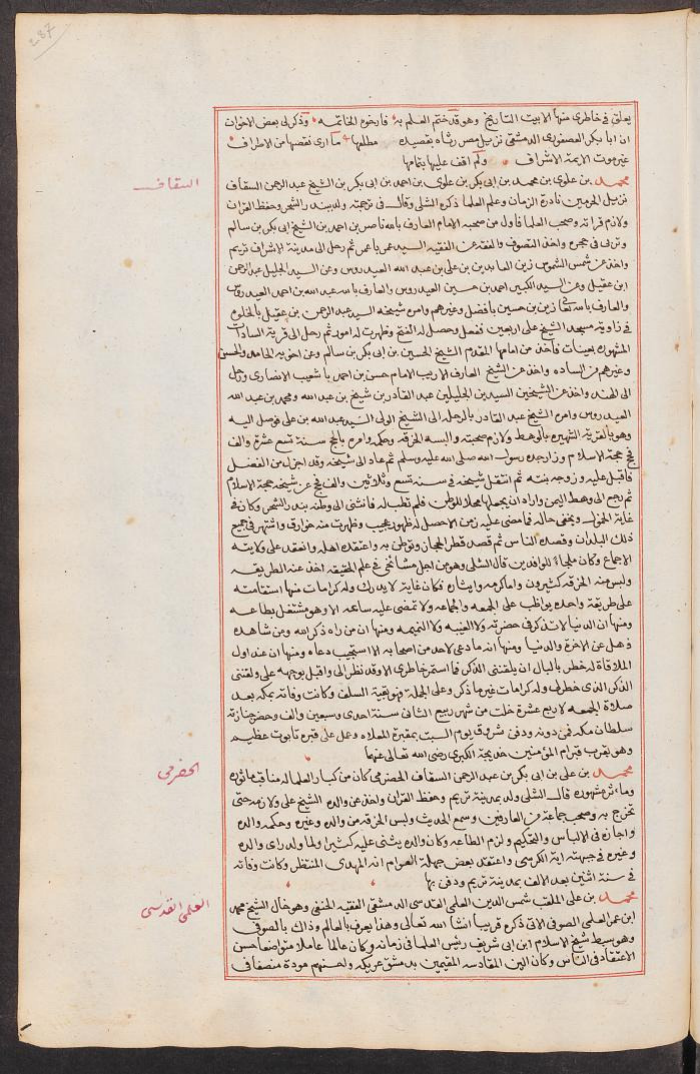 287
يعلق في خاطري منها الا بيت التاريخ وهو قد ختم العلم به فارخوه الخاتمه وذكر لى بعض الاخوان
ان ابا بكر العصفورى الدمشقى نزيل مصر رثاه بقصيده مطلعها ما ارى نقصها من الاطراف
غير موت الايمة الاشراف ولم اقف عليها بتمامها
السقاف
محمد بن علوى بن محمد بن ابى بكر بن علوى بن احمد بن ابى بكر بن الشيخ عبد الرحمن السقاف
نزيل الحرمين نادرة الزمان وعلم العلما ذكره الشلى وقال فى ترجمته ولد ببندر الشحر وحفظ القران
ولازم قراته وصحب العلما فاول من صحبه الامام العارف بالله ناصر بن احمد بن الشيخ ابى بكر بن سالم
وتربى فى حجره واخذ التصوف والفقه عن الفقيه السيد عمر باعمر ثم رحل الى مدينة الاشراف تريم
واخذ عن شمس الشموس زين العابدين بن على بن عبد الله العيدروس وعن السيد الجليل عبد الرحمن
ابن عقيل وعن السيد الكبير احمد بن حسين العيدروس والعارف بالله عبد الله بن احمد العيدروس
والعارف بالله تعالى زين بن حسين بافضل وغيرهم وامره شيخه السيد عبد الرحمن بن عقيل بالخلوه
فى زاوية مسجد الشيخ على اربعين ففعل وحصل له الفتح وظهرت له امور ثم رحل الى قرية السادات
المشهوره بعينات فاخذ من امامها المقدم الشيخ الحسين بن ابى بكر بن سالم وعن اخويه الحامد والحسن
وغيرهم من الساده واخذ عن الشيخ العارف الاريب الامام حسن بن احمد با شعيب الانصارى ورحل
الى الهند واخذ عن الشيخين السيدين الجليلين عبد القادر بن شيخ بن عبد الله ومحمد بن عبد الله
العيدروس وامره الشيخ عبد القادر بالرحله الى الشيخ الولى السيد عبد الله بن على فوصل اليه
وهو بالقرية الشهيره بالوهط ولازم صحبته والبسه الخرقه وحكمه وامره بالحج سنة تسع عشرة والف
فحج حجة الاسلام وزار جده رسول الله صلى الله عليه وسلم ثم عاد الى شيخه وقد اجزل من الفضل
فاقبل عليه وزوجه بنته ثم انتقل شيخه فى سنة تسع وثلاثين والف فحج عن شيخه حجة الاسلام
ثم رجع الى وهط اليمن واراد ان يجعلها محلا للوطن فلم تطب له فانثنى الى وطنه بندر الشحر وكان فى
غاية الخمول ويخفى حاله فما مضى عليه زمن الا حصل له ظهور عجيب وظهرت منه خوارق واشتهر فى جميع
ذلك البلدان وقصده الناس ثم قصد قطر الحجاز وتوطن به واعتقده اهله وانعقد على ولايته
الاجماع وكان ملجاء للوافدين قال الشلى وهو من اجل مشائخى فى علم الحقيقه اخذ عنه الطريقه
ولبس منه الخرقه كثيرون واما كرمه وايثاره فكان غاية لا يدرك وله كرامات منها استقامته
على طريقة واحده يواظب على الجمعه والجماعه ولا تمضى عليه ساعه الا وهو مشتغل بطاعه
ومنها ان الدنيا لا تذكر فى حضرته ولا الغيبه ولا النميمه ومنها ان من راه ذكر الله ومن شاهده
ذهل عن الاخرة والدنيا ومنها انه ما دعى لاحد من اصحابه الا استجيب دعاه ومنها ان عند اول
الملاقاة له خطر بالبال ان يلقننى الذكر فما استتر خاطرى الا وقد نظر الى واقبل بوجهه على ولقننى
الذكر الذى خطر لى وله كرامات غير ما ذكر وعلى الجملة فهو بقية السلف وكانت وفاته بمكه بعد
صلاة الجمعه لاربع عشرة خلت من شهر ربيع الثانى سنة احدى وسبعين والف وحضر جنازته
سلطان مكه فمن دونه ودفن شروق يوم السبت بمقبرة المعلاه وعمل على قبره تابوت عظيم
وهو بقرب قبر ام المؤمنين خديجة الكبرى رضى الله تعالى عنها
الحضرمى
محمد بن على بن ابى بكر بن عبد الرحمن السقاف الحضرمى كان من كبار العلما له مناقب ماثوره
وماءثره مشهوره قال الشلى ولد بمدينة تريم وحفظ القران واخذ عن والده الشيخ على ولازمه حتى
تخرج به وصحب جماعة من العارفين وسمع الحديث ولبس الخرقه من والده وغيره وحكمه والده
واجازه فى الالباس والتحكيم ولزم الطاعه وكان والده يثنى عليه كثيرا ولما ولد راى والده
وغيره فى جبهته اية الكرسى واعتقد بعض جهلة العوام انه المهدى المنتظر وكانت وفاته
فى سنة اثنين بعد الالف بمدينة تريم ودفن بها
العلمى القدسى
محمد بن على الملقب شمس الدين العلمى القدسى الدمشقى الفقيه الحنفى وهو خال الشيخ محمد
ابن عمر العلمى الصوفى الاتى ذكره قريبا انشا الله تعالى وهذا يعرف بالعالم وذاك بالصوفى
وهو سبط شيخ الاسلام ابن ابى شريف رئيس العلما فى زمانه وكان عالما عاملا متواضعا حسن
الاعتقاد فى الناس وكان الين المقادسه المقيمين بدمشق عريكه واحسنهم مودة منصفا فى